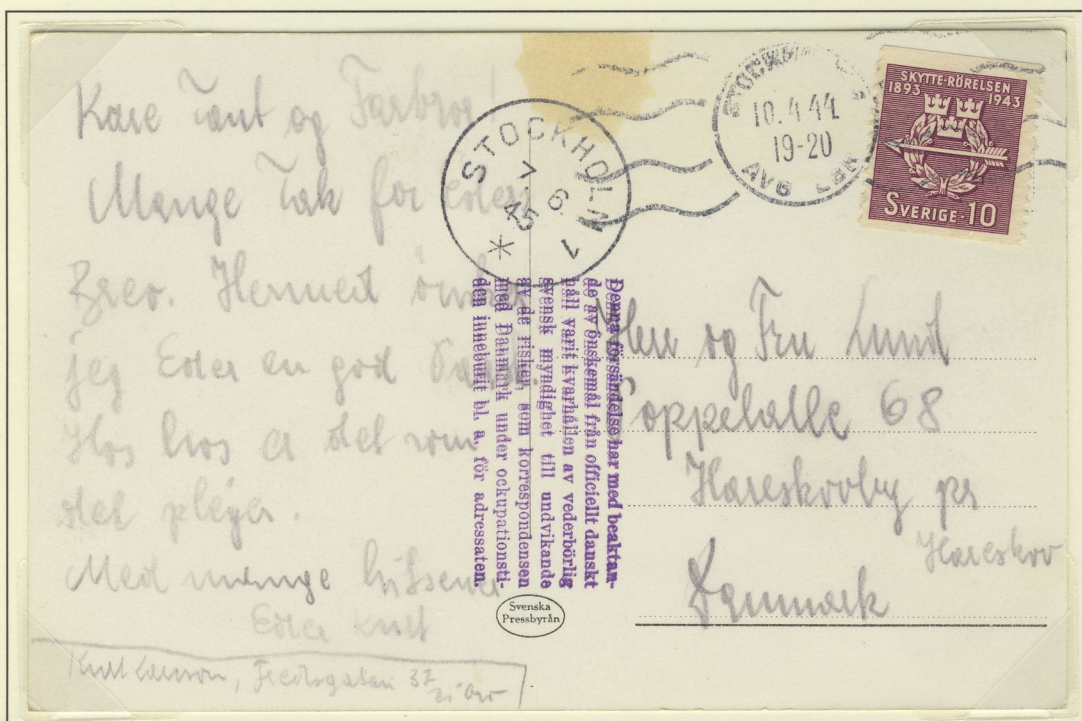 Kære Tant og Farbror!
Mange Tak for Eders
Brev. Hermed ønsker
jeg Eder en god
Hos hos a det som
det plejer.
Med mange hilsener
Eder Knut
Fredsgatan 37
STOCKHOLM 1
7 6. 45
STOCKHOLM
10.4.44
19-20
AVG LBR
SKYTTE-RÖRELSEN
1893 1943
SVERIGE·10
Denna försändelse har med beaktan-
de av önskemål från officiellt danskt
håll varit kvarhållen av vederbörlig
svensk myndighet till undvikande
av de risker, som korrespondensen
med Danmark under ockupationsti-
den inneburit bl. a. för adressaten.
og Fru Lund
68
Hareskovby pr
Hareskov
Danmark
Svenska
Pressbyrån